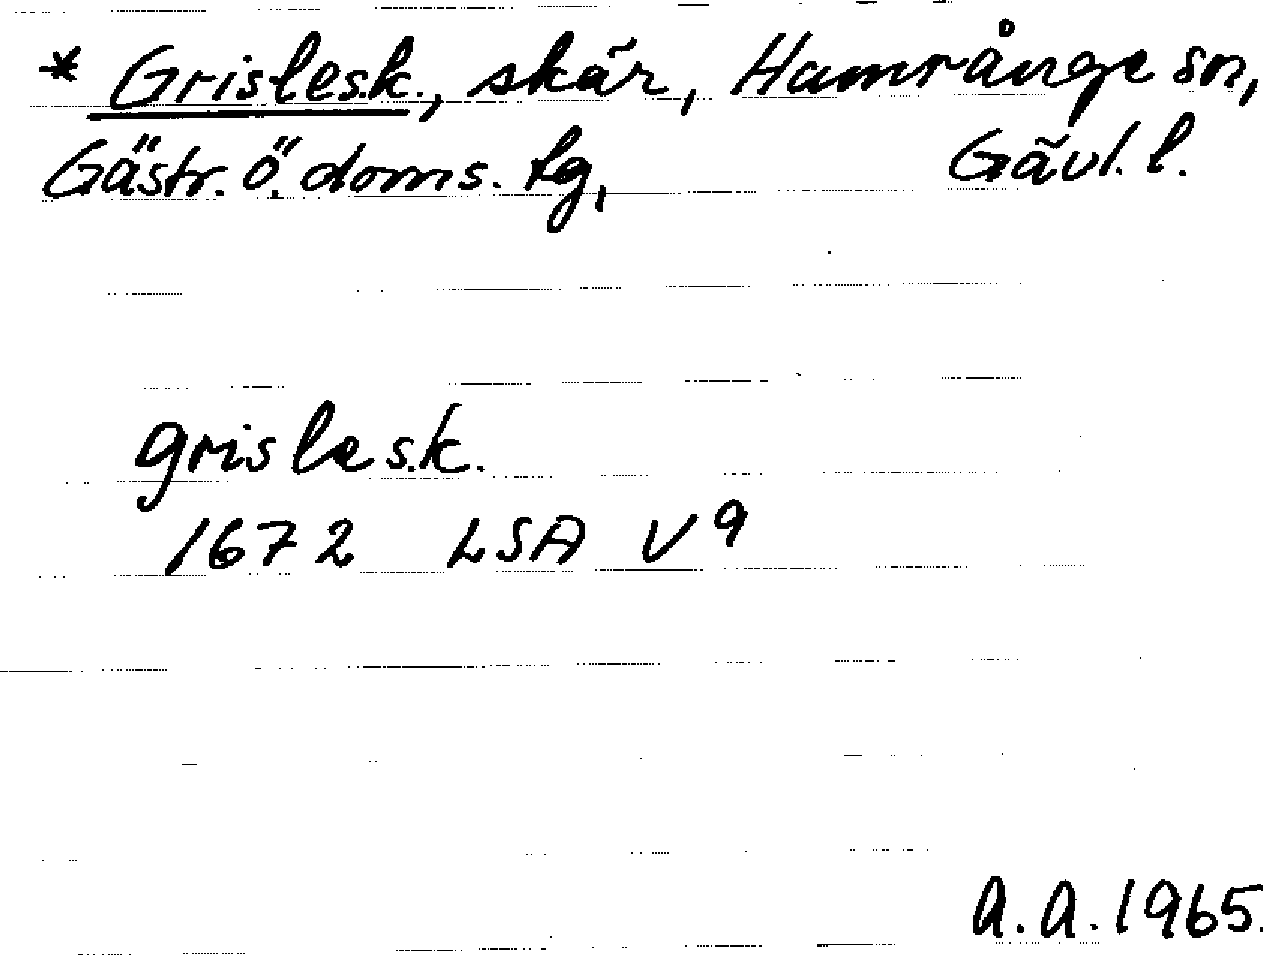 * Grislesk., skär, Hamrånge sn,
Gästr. ö. doms. tg, Gävl. l.
grislesk.
1672 LSA V9
A.A. 1965.